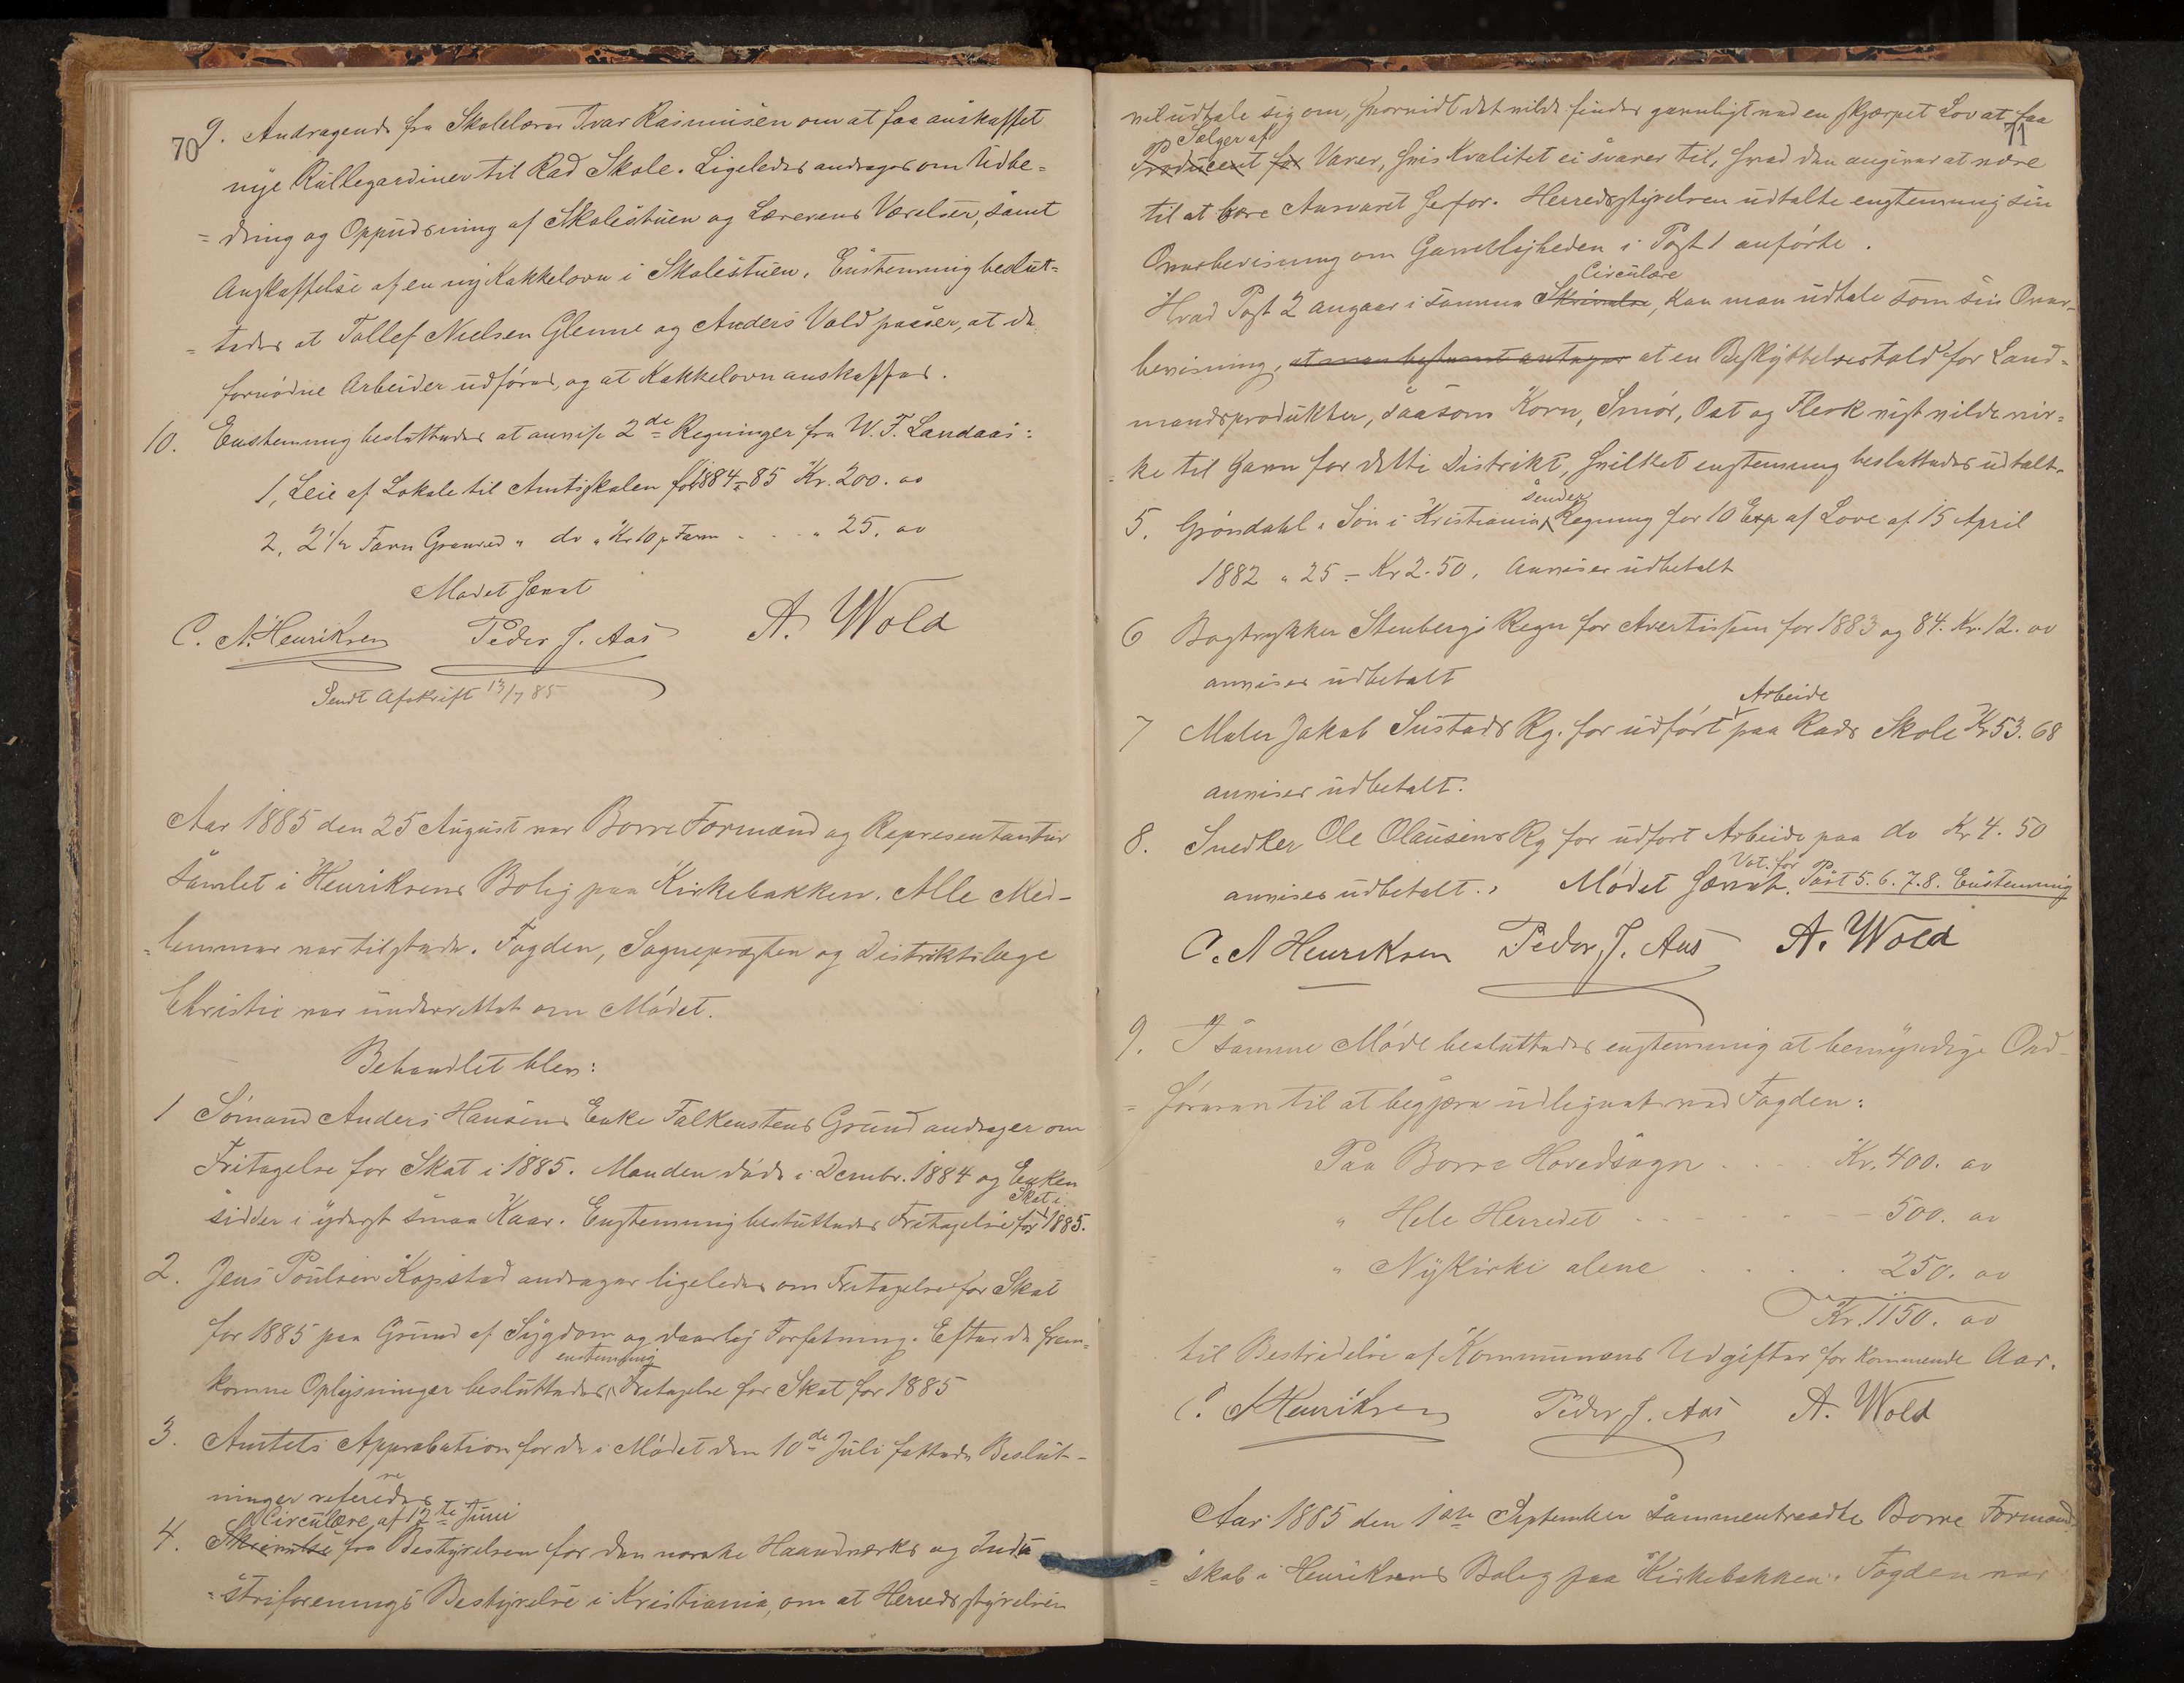 70
9. Andragende fra Skolelærer Ivar Rasmussen om at faa anskaffet
nye Rullegardiner til Rad Skole. Ligeledes andrages om Udbe=
=dring og Oppudsning af Skolestuen og Lærerens Værelser, samt
Anskaffelse af en ny Kakkelovn i Skolestuen. Enstemmig beslut=
=tedes at Tollef Nielsen Glenne og Anders Vold paaser, at de
fornødne Arbeider udføres, og at Kakkelovn anskaffes.
10. Enstemmig besluttedes at anvise 2de Regninger fra W. F. Landaas:
1, Leie af Lokale til Amtsskolen for 1884-85 Kr. 200. oo
2, 2 1/2 Favn Granved " do " Kr 10 p Favn . . . " 25. oo
Mødet hævet
C. A. Henriksen Peder J. Aas A. Wold
Sendt Afskrift 13/7 85
Aar 1885 den 25 August var Borre Formænd og Representantur
samlet i Henriksens Bolig paa Kirkebakken. Alle Med-
=lemmer var tilstede. Fogden, Sognepresten og Distriktslæge
Christie var underrettet om Mødet.
Behandlet blev:
1 Sømand Anders Hansens Enke Falkenstens Grund andrager om
Fritagelse for Skat i 1885. Manden døde i Dcmbr. 1884 og Enken
sidder i yderst smaa Kaar. Enstemmig besluttedes Fritagelse for Skat i 1885.
2. Jens Poulsen Kopstad andrager ligeledes om Fritagelse for Skat
for 1885 paa Grund af Sygdom og daarlig Forfatning. Efter de frem=
komne Oplysninger besluttedes enstemmig Fritagelse for Skat for 1885
3. Amtets Approbation for de i Mødet den 10de Juli fattede Beslut-
ninger refereredes
4. Skrivelse Circulære af 12te Juni fra Bestyrelsen for den norske Haandværks og Indu
=striforenings Bestyrelse i Kristiania, om at Herredsstyrelsen
71
vil udtale sig om, hvorvidt det vilde findes gavnligt ved en skjærpet Lov at faa
Producent for op Sælger af Varer, hvis Kvalitet ei svarer til, hvad den angives at være
til at bære Ansvaret herfor. Herredsstyrelsen udtalte enstemmig sin
Overbevisning om Gavnligheden i Post 1 anførte.
Hvad Post 2 angaar i samme Skrivelse Circulære, kan man udtale som sin Over-
bevisning, at man bestemt antager at en Beskyttelsestold for Land=
mandsprodukter, saasom Korn, Smør, Ost og Flesk vist vilde vir=
=ke til Gavn for dette Distrikt, hvilket enstemmig besluttedes udtalt.
5. Grøndahl & Søn i Kristiania sender Regning for 10 Exp af Love af 15 April
1882 " 25 - Kr 2.50. Anvises udbetalt
6 Bogtrykker Stenbergs Regn for Avertissem for 1883 og 84. Kr. 12. oo
anvises udbetalt
7 Maler Jakob Sustads Rg. for udført Arbeide paa Rads Skole Kr 53.68
anvises udbetalt.
8. Snedker Ole Olausens Rg for udført Arbeide paa do Kr 4.50
anvises udbetalt. Mødet hævet. Vot. for Post 5. 6. 7. 8. Enstemmig
C. A Henriksen Peder J. Aas A. Wold
9. I samme Møde besluttedes enstemmig at bemyndige Ord-
=føreren til at begjære udlignet ved Fogden:
Paa Borre Hovedsogn . . . . Kr. 400. oo
" Hele Herredet . . . . 500. oo
" Nykirke alene . . . . 250. oo
Kr. 1150. oo
til Bestridelse af Kommunens Udgifter for kommende Aar.
C. A Henriksen Peder J. Aas A. Wold
Aar 1885 den 1ste September sammentraadte Borre Formand-
=skab i Henriksens Bolig paa Kirkebakken. Fogden var